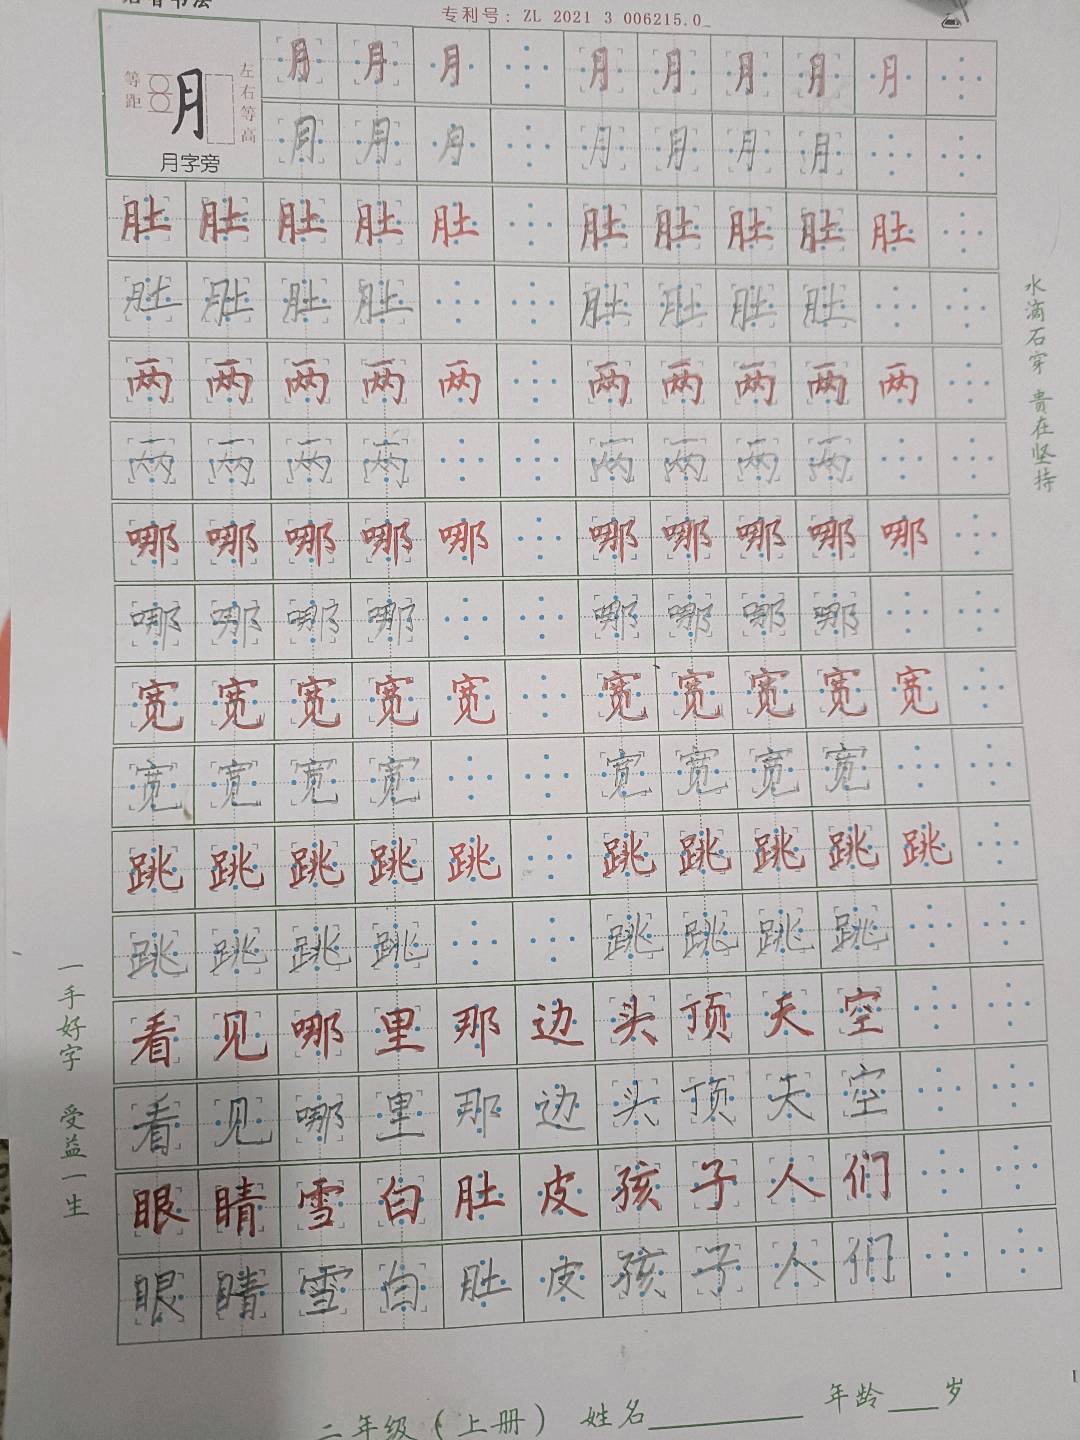 专利号: ZL 2021 3 006215.0
等距
月
左右等高
月字旁
月 月 月 月 月 月 月 月
月 月 月 月 月 月 月
肚 肚 肚 肚 肚 肚 肚 肚 肚 肚
肚 肚 肚 肚 肚 肚 肚 肚
两 两 两 两 两 两 两 两 两 两
两 两 两 两 两 两 两 两
哪 哪 哪 哪 哪 哪 哪 哪 哪 哪
哪 哪 哪 哪 哪 哪 哪 哪
宽 宽 宽 宽 宽 宽 宽 宽 宽 宽
宽 宽 宽 宽 宽 宽 宽 宽
跳 跳 跳 跳 跳 跳 跳 跳 跳 跳
跳 跳 跳 跳 跳 跳 跳 跳
看 见 哪 里 那 边 头 顶 天 空
看 见 哪 里 那 边 头 顶 天 空
眼 睛 雪 白 肚 皮 孩 子 人 们
眼 睛 雪 白 肚 皮 孩 子 人 们
水滴石穿 贵在坚持
一手好字 受益一生
二年级(上册) 姓名 年龄 岁